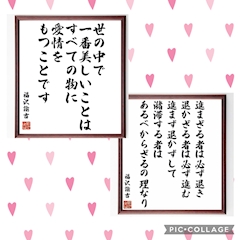 世の中で
一番美しいことは
すべての物に
愛情を
もつことです
福沢諭吉
進まざる者は必ず退き
退かざる者は必ず進む
進まず退かずして
瀦滞する者は
あるべからざるの理なり
福沢諭吉
PIC•COLLAGE